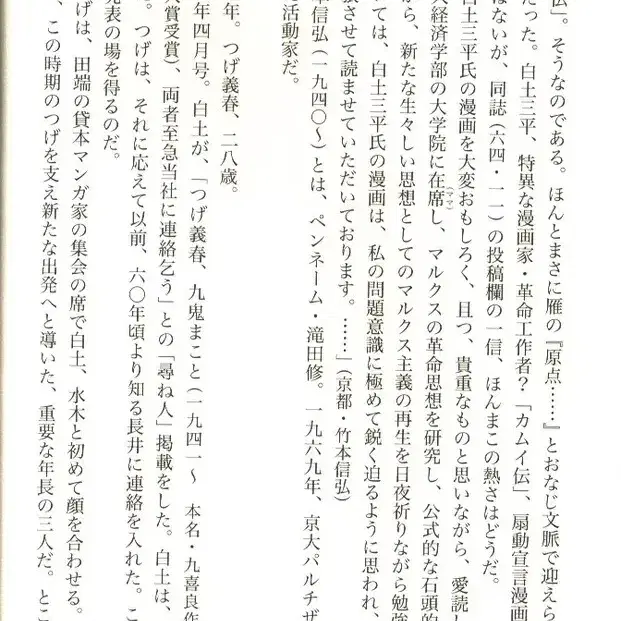 伝」。そうなのである。ほんとまさに雁の『原点……』とおなじ文脈で迎えら
だった。白土三平、特異な漫画家・革命工作者？「カムイ伝」、扇動宣言漫画
はないが、同誌（六四・一一）の投稿欄の一信、ほんまこの熱さはどうだ。
白土三平氏の漫画を大変おもしろく、且つ、貴重なものと思いながら、愛読し
大経済学部の大学院に在席（ママ）し、マルクスの革命思想を研究し、公式的な石頭的
から、新たな生々しい思想としてのマルクス主義の再生を日夜祈りながら勉強
ては、白土三平氏の漫画は、私の問題意識に極めて鋭く迫るように思われ、
張させて読ませていただいております。……」（京都・竹本信弘）
本信弘（一九四〇〜）とは、ペンネーム・滝田修。一九六九年、京大パルチザ
活動家だ。
年。つげ義春、二八歳。
年四月号。白土が、「つげ義春、九鬼まこと（一九四一〜　本名・九喜良作
賞受賞）、両者至急当社に連絡乞う」との「尋ね人」掲載をした。白土は、
。つげは、それに応えて以前、六〇年頃より知る長井に連絡を入れた。こ
発表の場を得るのだ。
げは、田端の貸本マンガ家の集会の席で白土、水木と初めて顔を合わせる。
、この時期のつげを支え新たな出発へと導いた、重要な年長の三人だ。とこ